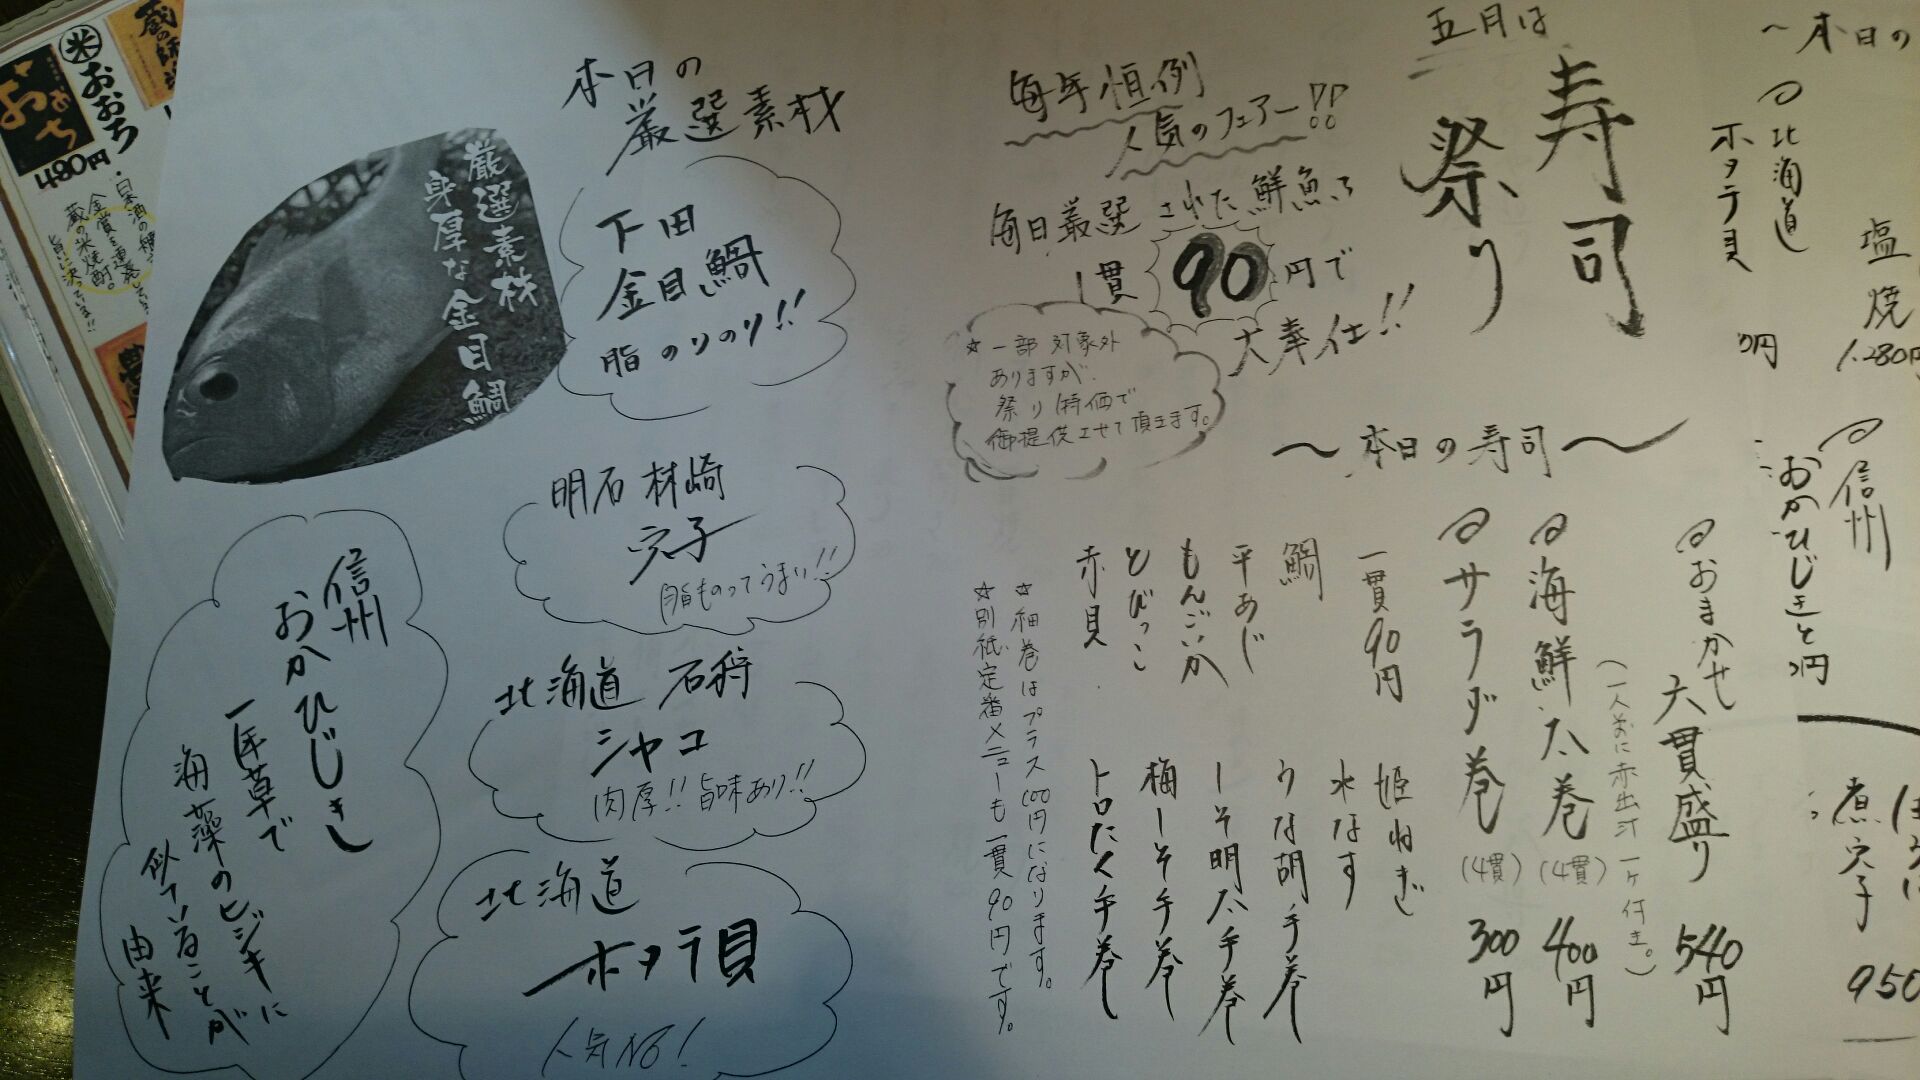 五月は
寿司
祭り
毎年恒例
人気のフェアー!!
毎日厳選された鮮魚を
1貫90円で
大奉仕!!
☆一部対象外
ありますが、
祭り特価で
御提供させて頂きます。
〜本日の寿司〜
おまかせ
六貫盛り 540円
(一人前に赤出汁一ヶ付き。)
海鮮太巻(4貫) 400円
サラダ巻(4貫) 300円
一貫90円
鯛
平あじ
もんごいか
とびっこ
赤貝
姫ねぎ
水なす
うな胡手巻
しそ明太手巻
梅しそ手巻
トロたく手巻
☆細巻はプラス100円になります。
☆別紙定番メニューも一貫90円です。
本日の
厳選素材
厳選素材
身厚な金目鯛
下田
金目鯛
脂のりのり!!
明石 林崎
穴子
脂ものってうまい!!
北海道 石狩
シャコ
肉厚!! 旨味あり!!
北海道
ホタテ貝
人気No!
信州
おかひじき
一年草で
海藻のヒジキに
似ていることが
由来
〜本日の
北海道
ホタテ貝
塩焼
1.280円
信州
おかひじきと
円
煮穴子
950
米
おおち
おおち
480円
金賞を連発
蔵の米焼酎。
旨いに決っています!!